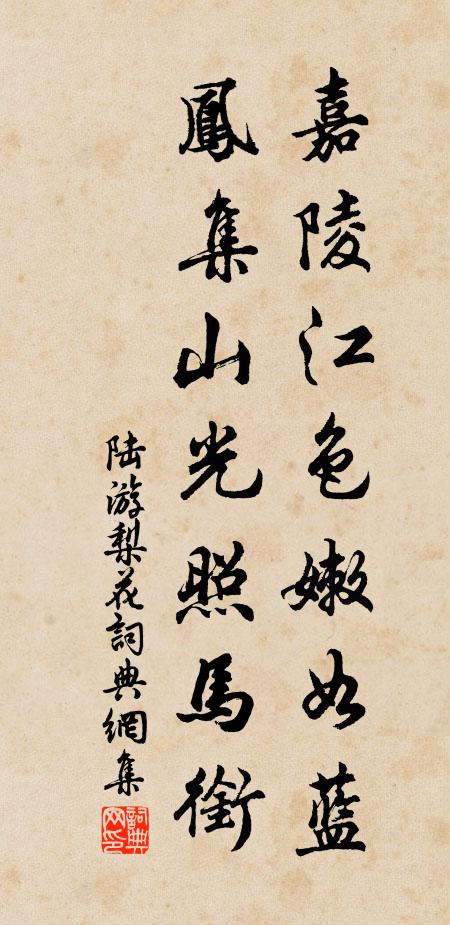 嘉陵江色嫩如藍
鳳集山光照馬銜
陸游梨花詞典網集
詞典
网印